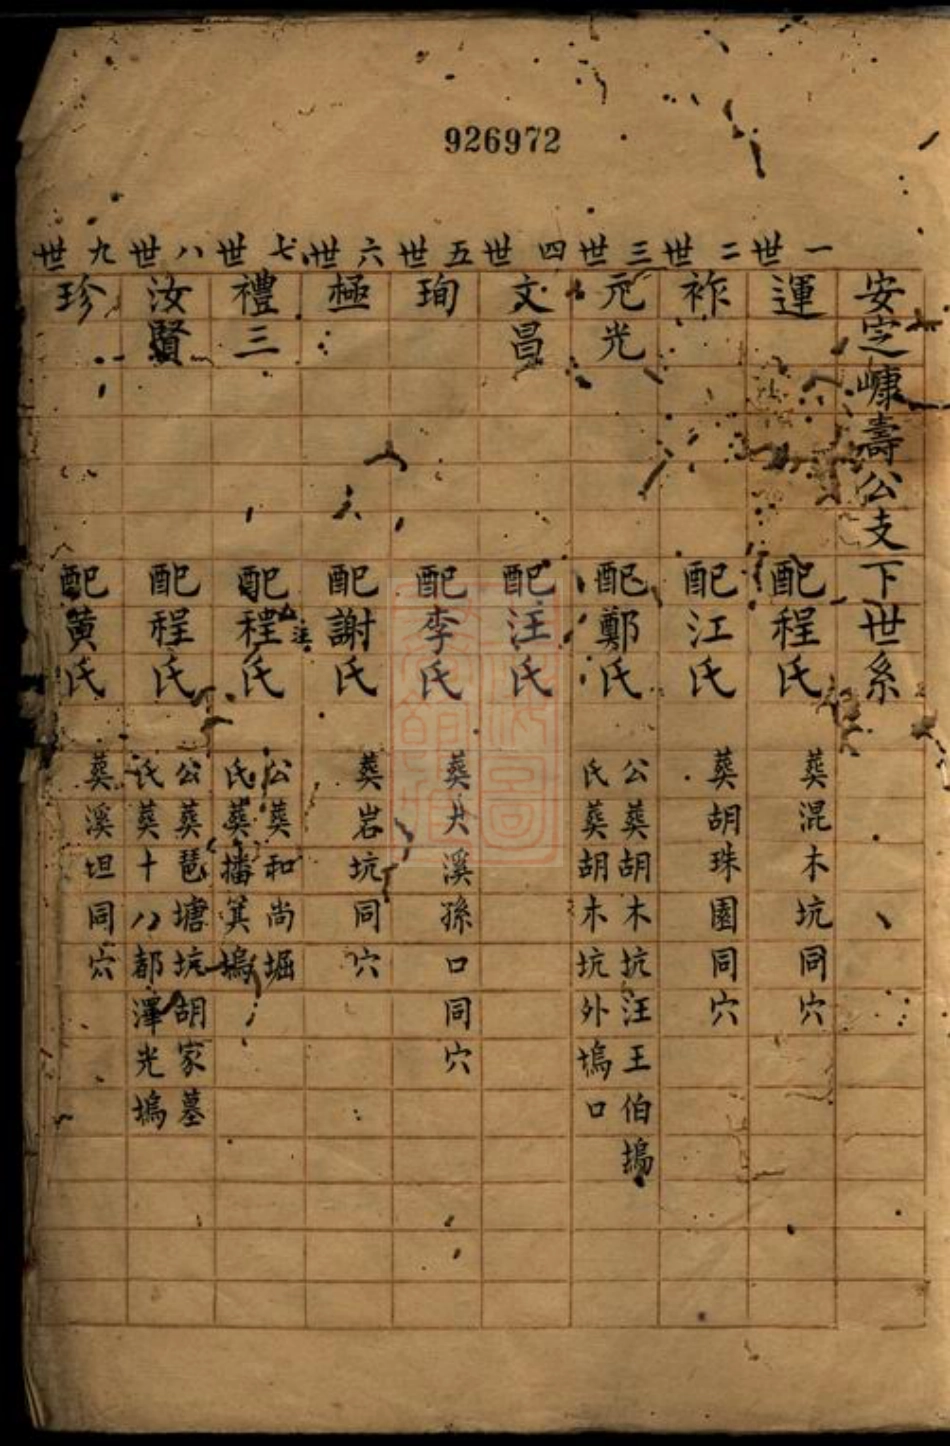 926972
安定㠠壽公支下世系
一世 運 配程氏 葬混木坑同穴
二世 祚 配江氏 葬胡珠園同穴
三世 元光 配鄭氏 公葬胡木坑汪王伯塢
氏葬胡木坑外塢口
四世 文昌 配汪氏
五世 珣 配李氏 葬大溪孫口同穴
六世 極 配謝氏 葬岩坑同穴
七世 禮三 配程氏 公葬和尚堀
氏葬播箕塢
八世 汝賢 配程氏 公葬琶塘坑胡家墓
氏葬十八都澤光塢
九世 珍 配黃氏 葬溪坦同穴